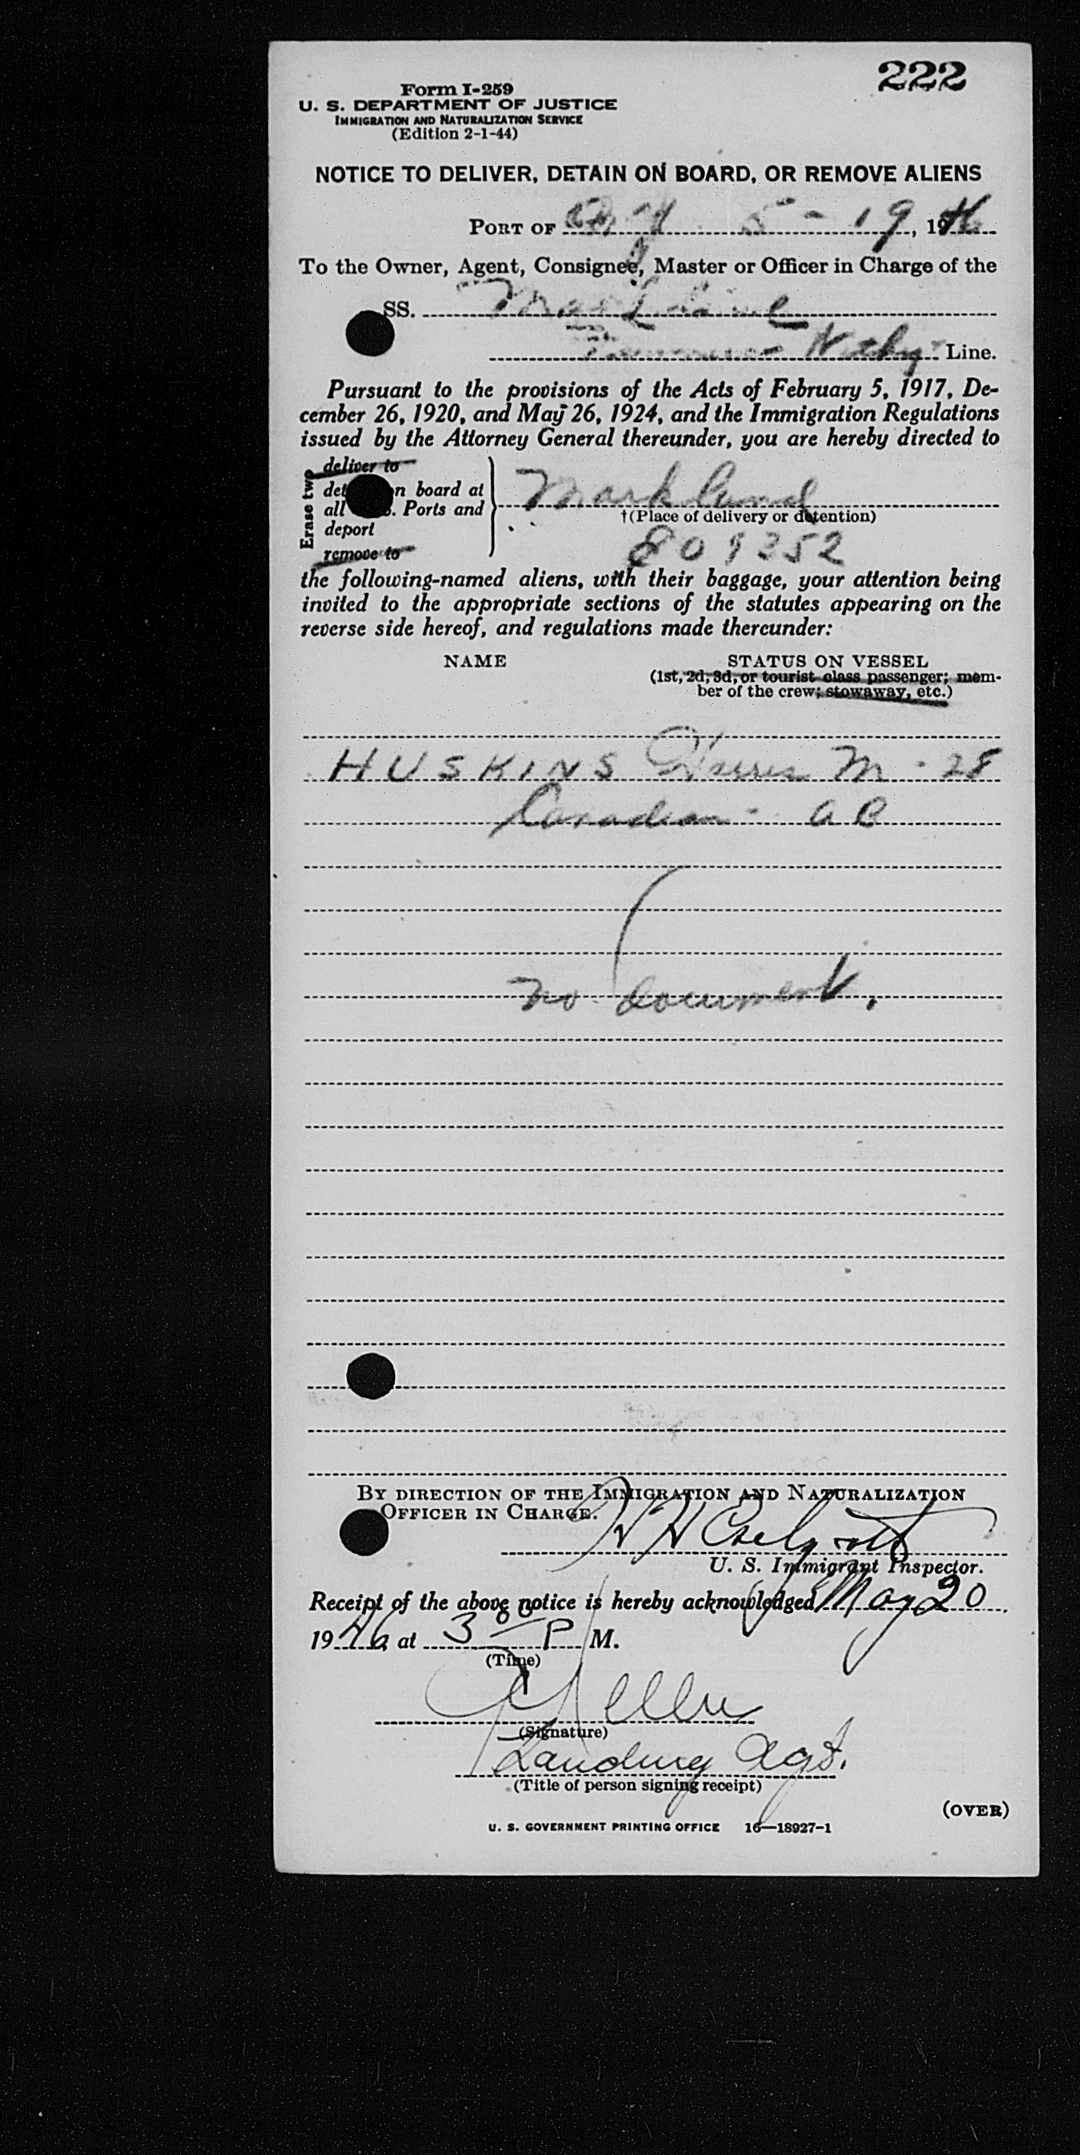 222
Form I-259
U. S. DEPARTMENT OF JUSTICE
IMMIGRATION AND NATURALIZATION SERVICE
(Edition 2-1-44)
NOTICE TO DELIVER, DETAIN ON BOARD, OR REMOVE ALIENS
PORT OF 5-19, 1946
To the Owner, Agent, Consignee, Master or Officer in Charge of the
SS. Markland
Line.
Pursuant to the provisions of the Acts of February 5, 1917, De-
cember 26, 1920, and May 26, 1924, and the Immigration Regulations
issued by the Attorney General thereunder, you are hereby directed to
Erase two
deliver to
det n board at
all . Ports and
deport
remove to
Markland
†(Place of delivery or detention)
809352
the following-named aliens, with their baggage, your attention being
invited to the appropriate sections of the statutes appearing on the
reverse side hereof, and regulations made thereunder:
NAME STATUS ON VESSEL
(1st, 2d, 3d, or tourist class passenger; mem-
ber of the crew; stowaway, etc.)
HUSKINS Harris M - 28
Canadian - AB
no document.
BY DIRECTION OF THE IMMIGRATION AND NATURALIZATION
OFFICER IN CHARGE.
U. S. Immigrant Inspector.
Receipt of the above notice is hereby acknowledged May 20
1946 at 3 00 P M.
(Time)
(Signature)
Landing Agt.
(Title of person signing receipt)
(OVER)
U. S. GOVERNMENT PRINTING OFFICE 16—18927-1